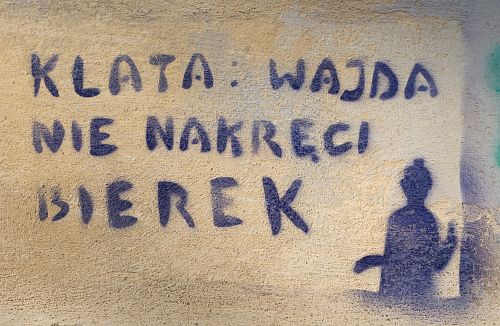 KLATA: WAJDA
NIE NAKRĘCI
BIEREK